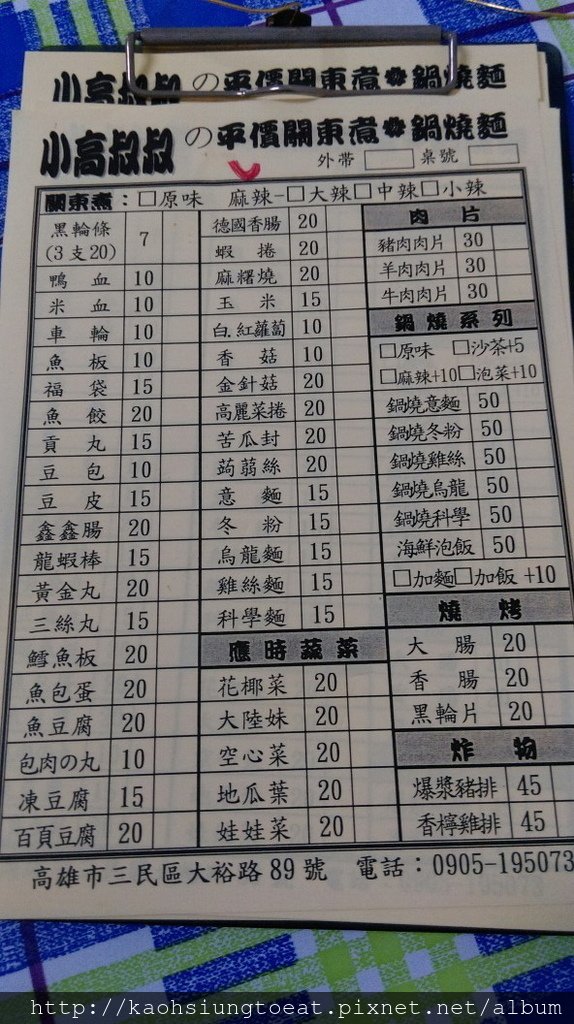 小高叔叔の平價關東煮✽鍋燒麵
小高叔叔の平價關東煮✽鍋燒麵
外帶 桌號
關東煮：□原味 麻辣-□大辣□中辣□小辣
黑輪條(3支20) 7
鴨血 10
米血 10
車輪 10
魚板 10
福袋 15
魚餃 20
貢丸 15
豆包 10
豆皮 15
鑫鑫腸 20
龍蝦棒 15
黃金丸 20
三絲丸 15
鱈魚板 20
魚包蛋 20
魚豆腐 20
包肉の丸 10
凍豆腐 15
百頁豆腐 20
德國香腸 20
蝦捲 20
麻糬燒 20
玉米 15
白.紅蘿蔔 10
香菇 10
金針菇 20
高麗菜捲 20
苦瓜封 20
蒟蒻絲 20
意麵 15
冬粉 15
烏龍麵 15
雞絲麵 15
科學麵 15
應時蔬菜
花椰菜 20
大陸妹 20
空心菜 20
地瓜葉 20
娃娃菜 20
肉片
豬肉肉片 30
羊肉肉片 30
牛肉肉片 30
鍋燒系列
□原味 □沙茶+5
□麻辣+10□泡菜+10
鍋燒意麵 50
鍋燒冬粉 50
鍋燒雞絲 50
鍋燒烏龍 50
鍋燒科學 50
海鮮泡飯 50
□加麵□加飯 +10
燒烤
大腸 20
香腸 20
黑輪片 20
炸物
爆漿豬排 45
香檸雞排 45
高雄市三民區大裕路89號 電話：0905-195073
http://kaohsiungtoeat.pixnet.net/album